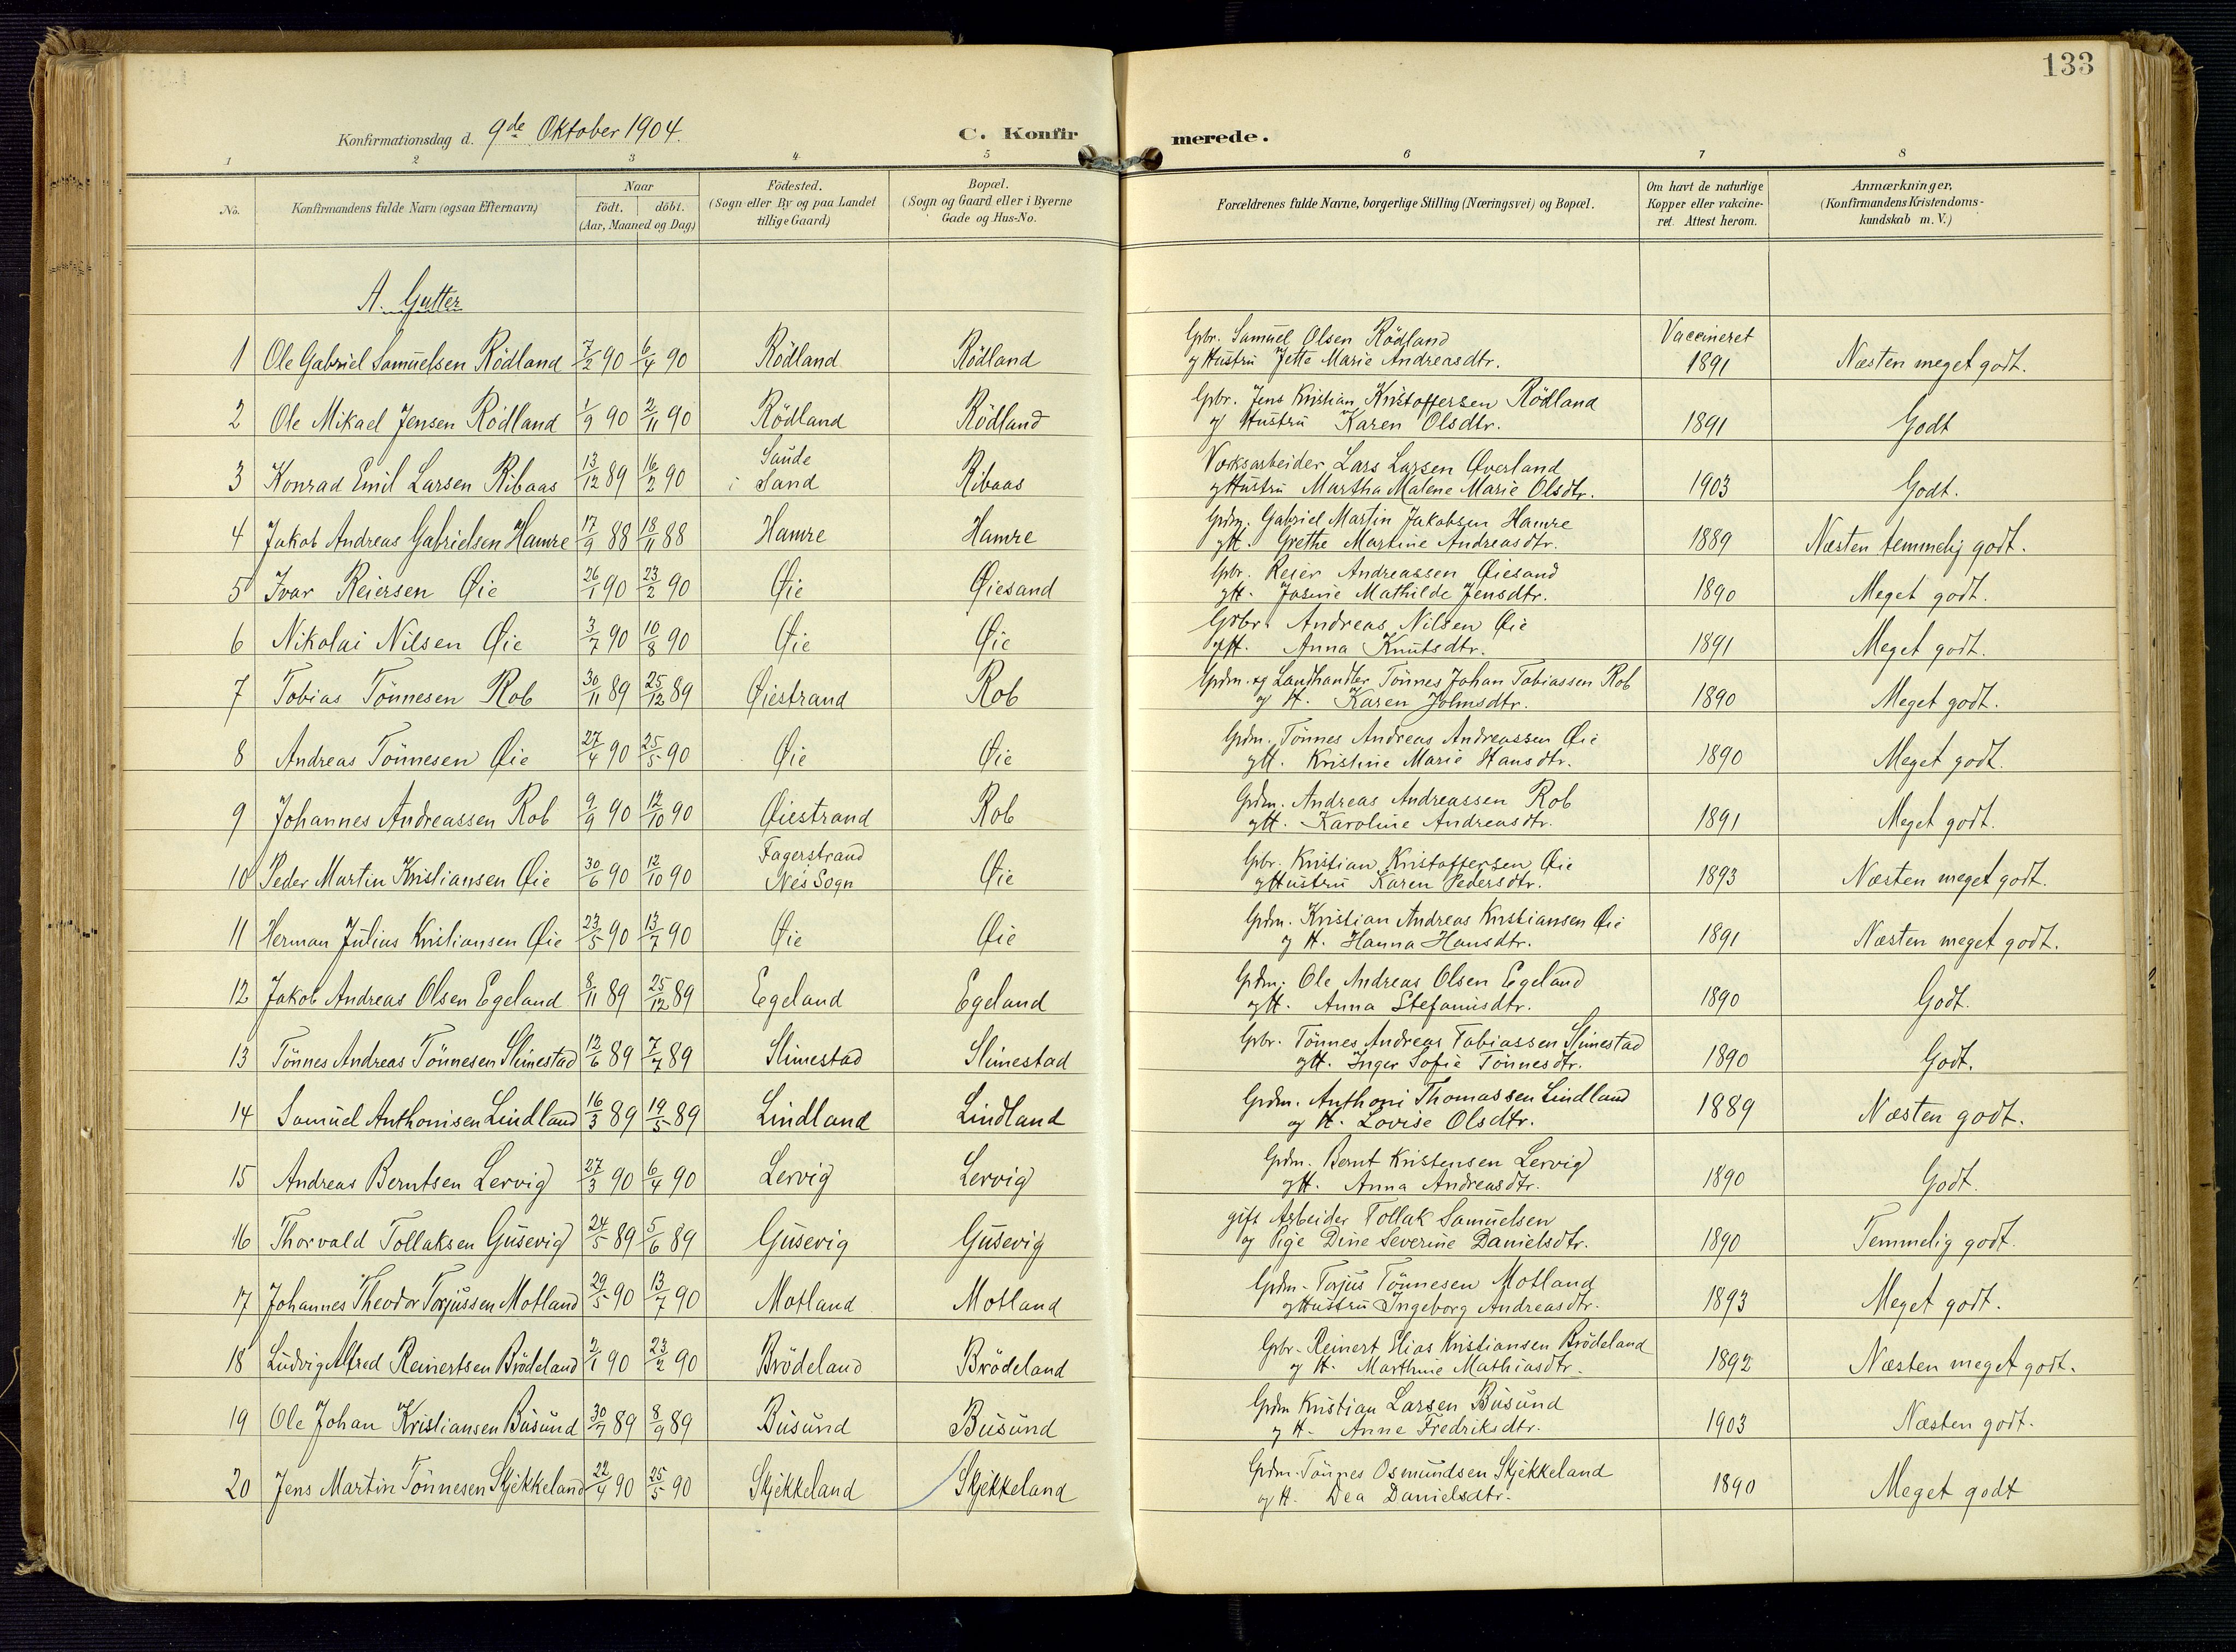 133
Konfirmationsdag d. 9de Oktober 1904.
C. Konfirmerede.
1 2 3 4 5 6 7 8
No. Konfirmandens fulde Navn (ogsaa Efternavn) Naar født. døbt. (Aar, Maaned og Dag) Födested. (Sogn eller By og paa Landet tillige Gaard) Bopæl. (Sogn og Gaard eller i Byerne Gade og Hus-No. Forældrenes fulde Navne, borgerlige Stilling (Næringsvei) og Bopæl. Om havt de naturlige Kopper eller vakcineret. Attest herom. Anmærkninger, (Konfirmandens Kristendomskundskab m. V.)
A. Gutter
1 Ole Gabriel Samuelsen Rödland 7/2 90 6/4 90 Rödland Rödland Gbr. Samuel Olsen Rödland
og Hustru Jette Marie Andreasdtr. Vaccineret 1891 Næsten meget godt.
2 Ole Mikael Jensen Rödland 1/9 90 2/11 90 Rödland Rödland Gbr. Jens Kristian Kristoffersen Rödland
og Hustru Karen Olsdtr. 1891 Godt
3 Konrad Emil Larsen Ribaas 13/12 89 16/2 90 Saude i Sand Ribaas Lars Larsen Øverland
og Hustru Martha Malene Marie Olsdtr. 1903 Godt.
4 Jakob Andreas Gabrielsen Hamre 17/9 88 18/11 88 Hamre Hamre Grdm. Gabriel Martin Jakobsen Hamre
og H. Grethe Martine Andreasdtr. 1889 Næsten temmelig godt.
5 Ivar Reiersen Øie 26/1 90 23/2 90 Øie Øiesand Gbr. Reier Andreassen Øiesand
og H. Jasine Mathilde Jensdtr. 1890 Meget godt.
6 Nikolai Nilsen Øie 3/7 90 10/8 90 Øie Øie Gbr. Andreas Nilsen Øie
og H. Anna Knutsdtr. 1891 Meget godt.
7 Tobias Tönnesen Rob 30/11 89 25/12 89 Øiestrand Rob Grdm. og Landhandler Tönnes Johan Tobiassen Rob
og H. Karen Johnsdtr. 1890 Meget godt.
8 Andreas Tönnesen Øie 27/4 90 25/5 90 Øie Øie Grdm. Tönnes Andreas Andreassen Øie
og H. Kristine Marie Hansdtr. 1890 Meget godt.
9 Johannes Andreassen Rob 9/9 90 12/10 90 Øiestrand Rob Grdm. Andreas Andreassen Rob
og H. Karoline Andreasdtr. 1891 Meget godt.
10 Peder Martin Kristiansen Øie 30/6 90 12/10 90 Fagerstrand Nes Sogn Øie Gbr. Kristian Kristoffersen Øie
og Hustru Karen Pedersdtr. 1893 Næsten meget godt.
11 Herman Julius Kristiansen Øie 23/5 90 13/7 90 Øie Øie Grdm. Kristian Andreas Kristiansen Øie
og H. Hanna Hansdtr. 1891 Næsten meget godt.
12 Jakob Andreas Olsen Egeland 8/11 89 25/12 89 Egeland Egeland Grdm. Ole Andreas Olsen Egeland
og H. Anna Stefanusdtr. 1890 Godt.
13 Tönnes Andreas Tönnesen Slimestad 12/6 89 7/7 89 Slimestad Slimestad Gbr. Tönnes Andreas Tobiassen Slimestad
og H. Inger Sofie Tönnesdtr. 1890 Godt.
14 Samuel Anthonisen Lindland 16/3 89 19/5 89 Lindland Lindland Grdm. Anthoni Thomassen Lindland
og H. Lovise Olsdtr. 1889 Næsten godt.
15 Andreas Berntsen Lervig 27/3 90 6/4 90 Lervig Lervig Grdm. Bernt Kristensen Lervig
og H. Anna Andreasdtr. 1890 Godt.
16 Thorvald Tollaksen Gusevig 24/5 89 5/6 89 Gusevig Gusevig gift Arbeider Tollak Samuelsen
og Pige Dine Severine Danielsdtr. 1890 Temmelig godt.
17 Johannes Theodor Torjussen Motland 29/5 90 13/7 90 Motland Motland Grdm. Torjus Tönnesen Motland
og Hustru Ingeborg Andreasdtr. 1893 Meget godt.
18 Ludvig Alfred Reinertsen Brödeland 2/1 90 23/2 90 Brödeland Brödeland Gbr. Reinert Elias Kristiansen Brödeland
og H. Marthine Mathiasdtr. 1892 Næsten meget godt.
19 Ole Johan Kristiansen Busund 30/7 89 8/9 89 Busund Busund Grdm Kristian Larsen Busund
og H. Anne Fredriksdtr. 1903 Næsten godt.
20 Jens Martin Tönnesen Skjekkeland 22/4 90 25/5 90 Skjekkeland Skjekkeland Grdm. Tönnes Osmundsen Skjekkeland
og H. Dea Danielsdtr. 1890 Meget godt